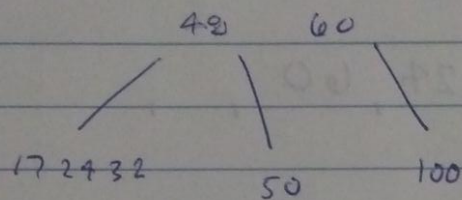 48 60
17 24 32 50 100